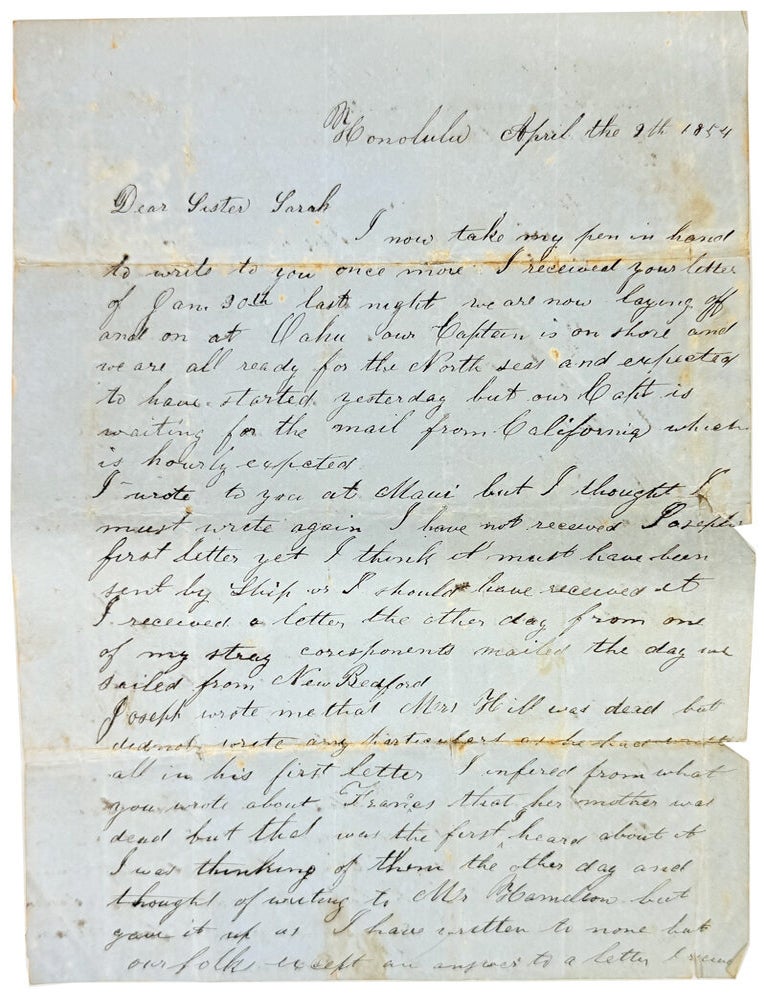 Honolulu April the 9th 1854
Dear Sister Sarah
I now take my pen in hand
to write to you once more I received your letter
of Jan 30th last night we are now laying off
and on at Oahu our Captain is on shore and
we are all ready for the North seas and expected
to have started yesterday but our Capt is
waiting for the mail from California which
is hourly expected
I wrote to you at Maui but I thought I
must write again I have not received Josephs
first letter yet I think it must have been
sent by Ship or I should have received it
I received a letter the other day from one
of my stray coresponents mailed the day we
sailed from New Bedford
Joseph wrote me that Mrs Hill was dead but
did not write any particulars as he had wrote
all in his first letter I infered from what
you wrote about Frances that her mother was
dead but that was the first I heard about it
I was thinking of them the other day and
thought of writing to Mr but
gave it up as I have written to none but
our folks except an answer to a letter I